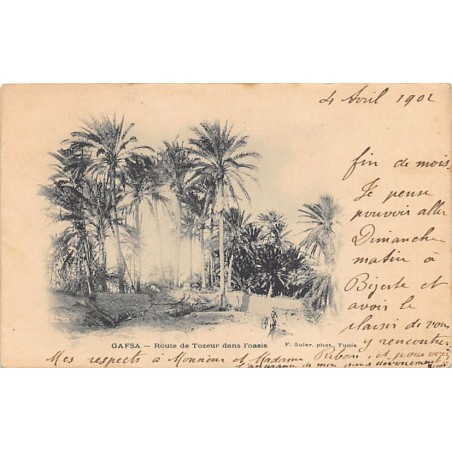 4 Avril 1902
fin de mois.
Je pense
pouvoir aller
Dimanche
matin à
Bizerte et
avoir le
plaisir de vous
y rencontrer
GAFSA — Route de Tozeur dans l'oasis
F. Soler, phot., Tunis
Mes respects à Monsieur et Madame Ribou, et pour vous
l'assurance de mon grand dévouement